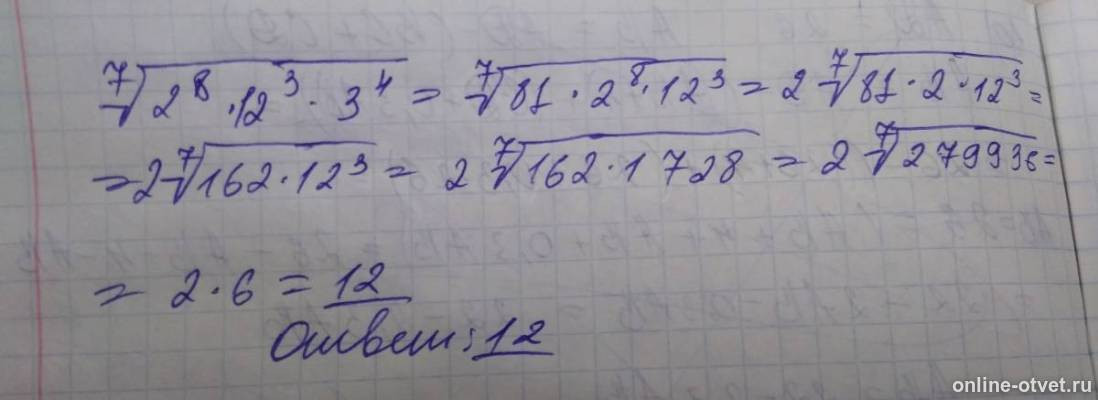 ⁷√(2⁸ · 12³ · 3⁴) = ⁷√(81 · 2⁸ · 12³) = 2 ⁷√(81 · 2 · 12³) =
= 2 ⁷√(162 · 12³) = 2 ⁷√(162 · 1 728) = 2 ⁷√(279936) =
= 2 · 6 = 12
Ответ: 12
online-otvet.ru